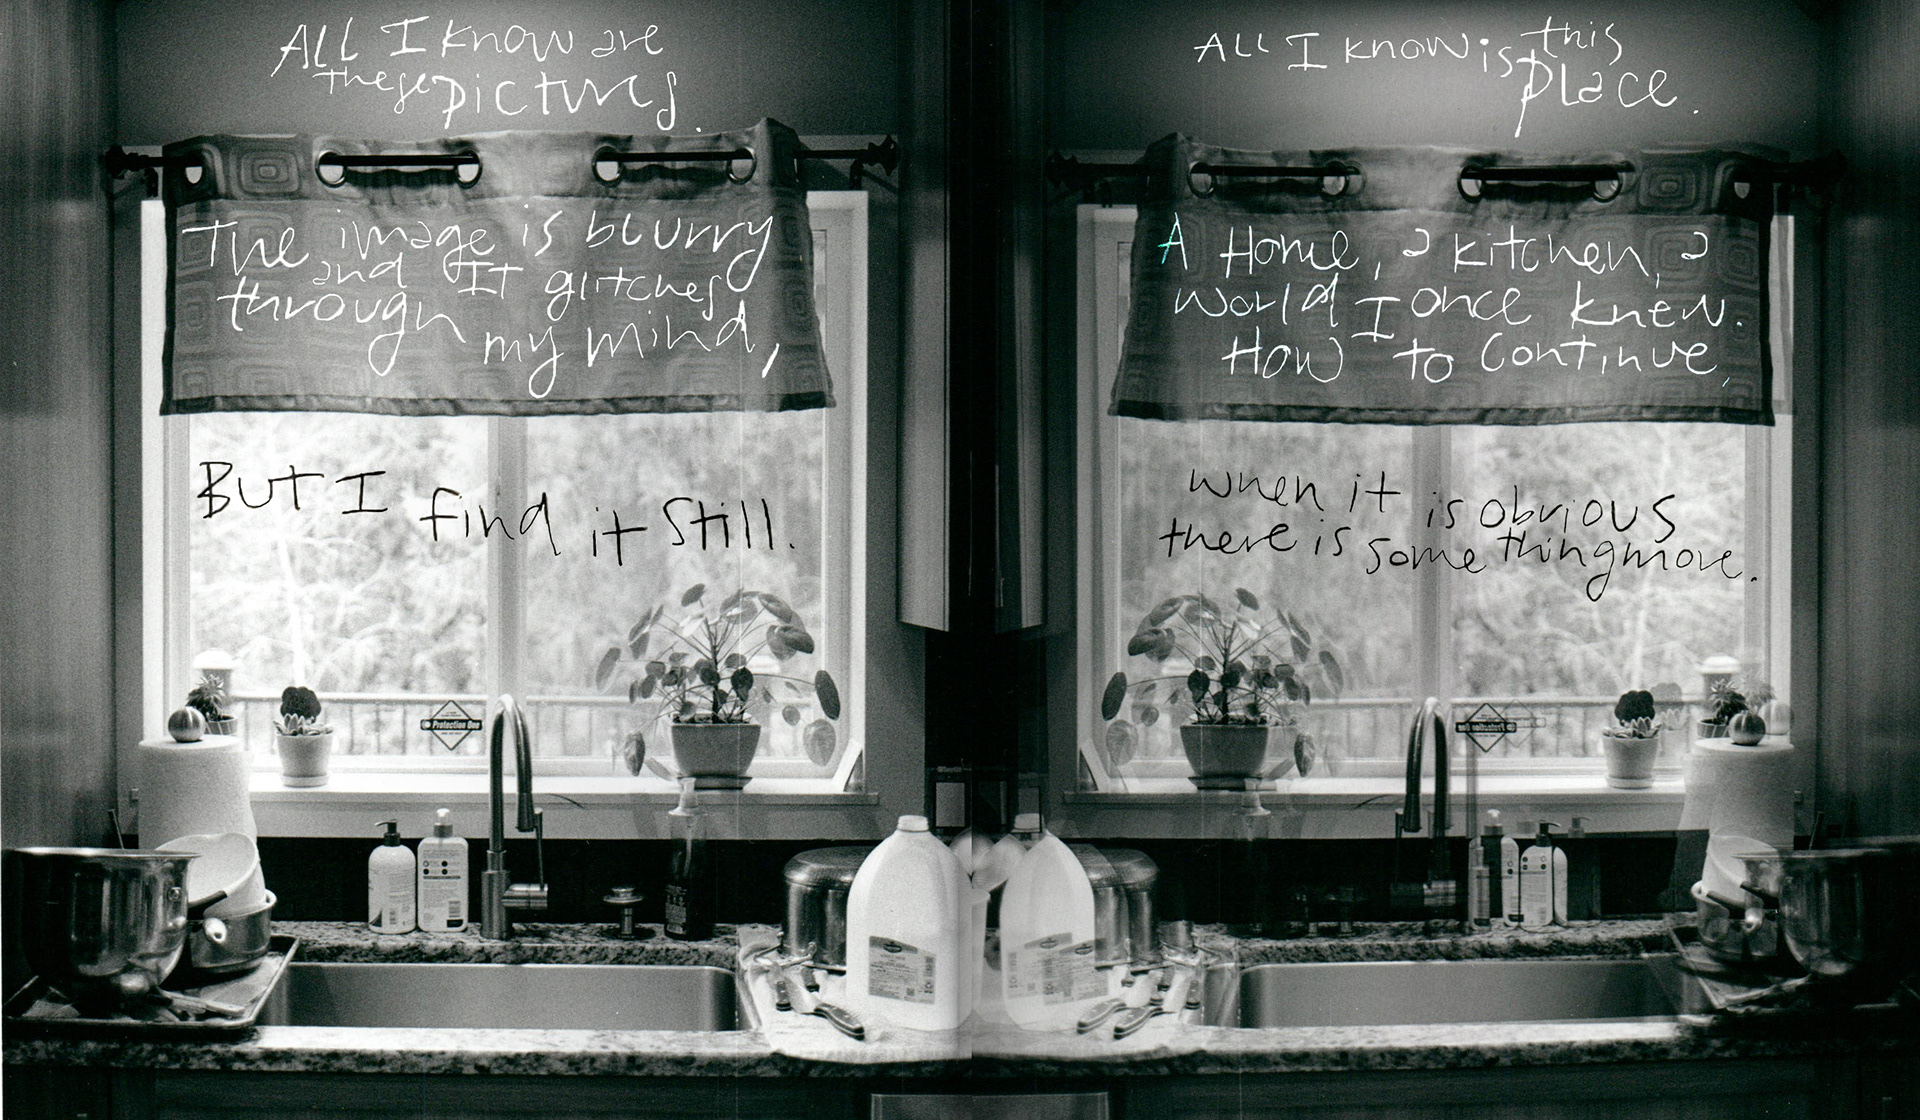 ALL I know are
these pictures.
The image is blurry
and IT glitches
through my mind,
But I find it still.
ALL I know is this
place.
A Home, a kitchen, a
world I once knew.
How to continue,
when it is obvious
there is something more.
Protection One